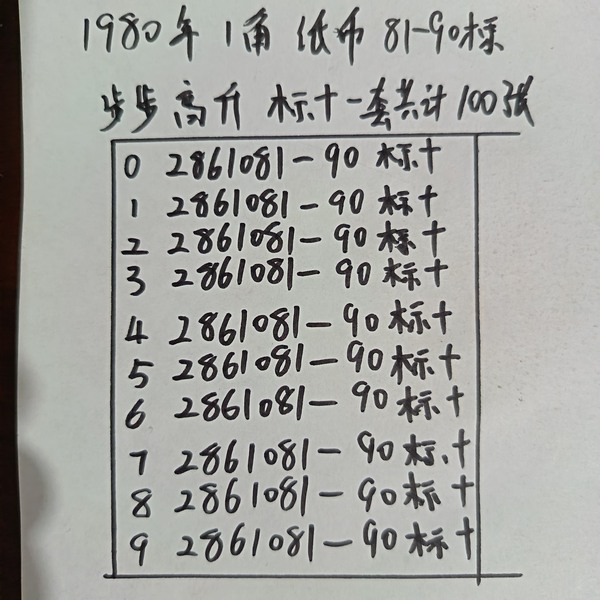 1980年1角纸币81-90标
步步高升 标十一套共计100张
0 2861081-90标十
1 2861081-90标十
2 2861081-90标十
3 2861081-90标十
4 2861081-90标十
5 2861081-90标十
6 2861081-90标十
7 2861081-90标十
8 2861081-90标十
9 2861081-90标十